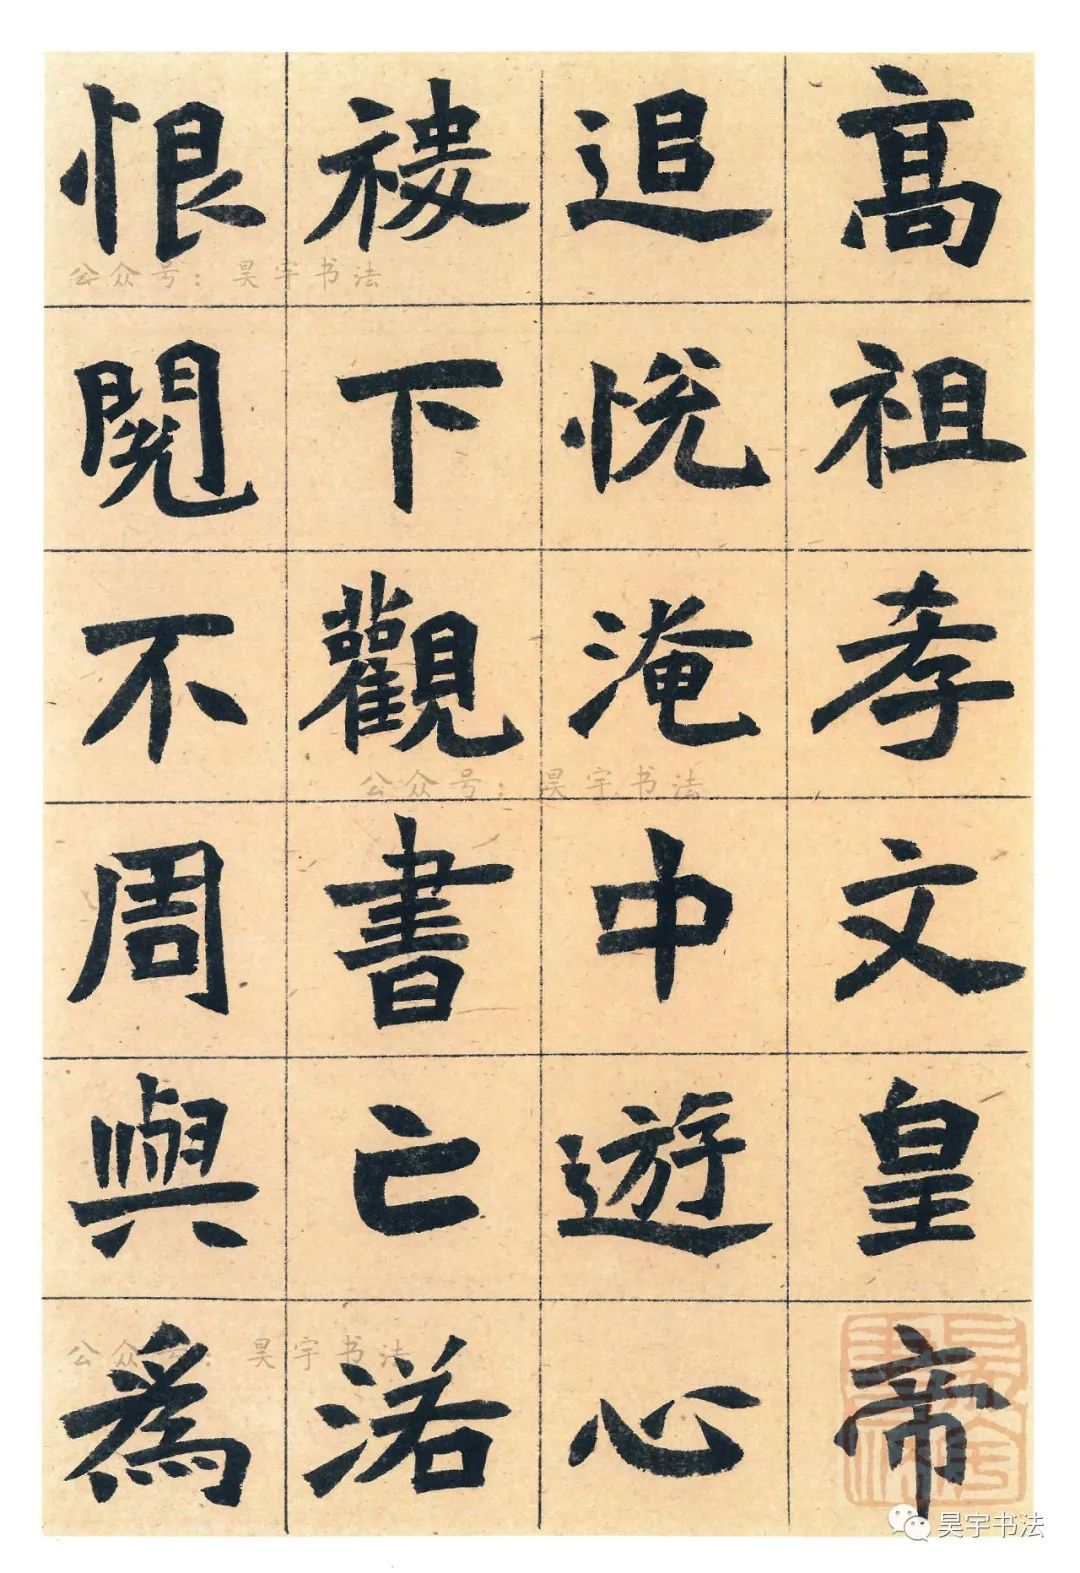 高祖孝文皇帝
追悅淹中遊心
禝下觀書亡渃
恨閱不周與爲
公众号：昊宇书法
公众号：昊宇书法
公众号：昊宇书法
昊宇书法